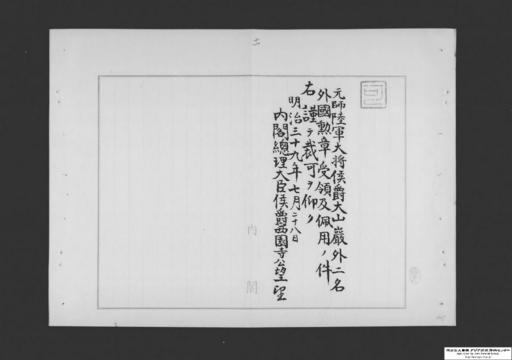 元帥陸軍大将侯爵大山巖外二名
外國勲章受領及佩用ノ件
右謹テ裁可ヲ仰ク
明治三十九年七月二十八日
内閣總理大臣侯爵西園寺公望
内閣